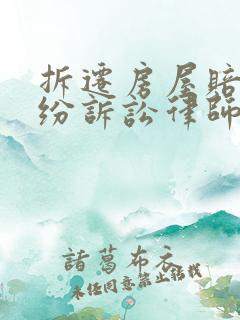 拆遷房屋賠
紛訴訟律師
諸葛布衣
未经同意禁止转载